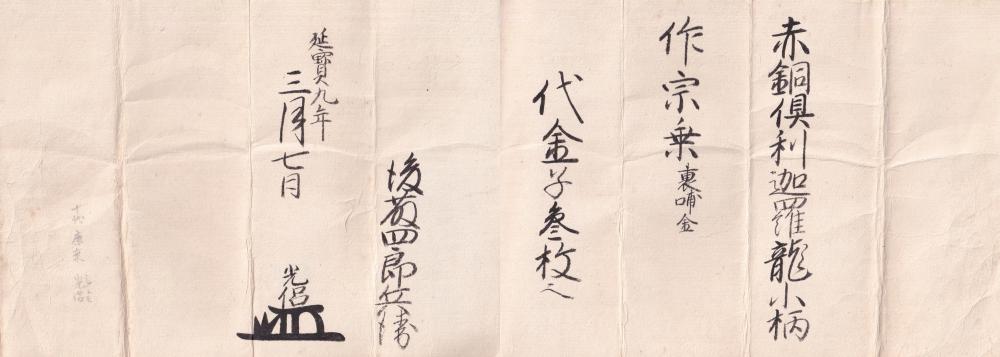 赤銅倶利迦羅龍小柄
作宗乗裏哺金
代金子叄枚
後藤四郎兵衛
延寶九年
三月七日
光侶